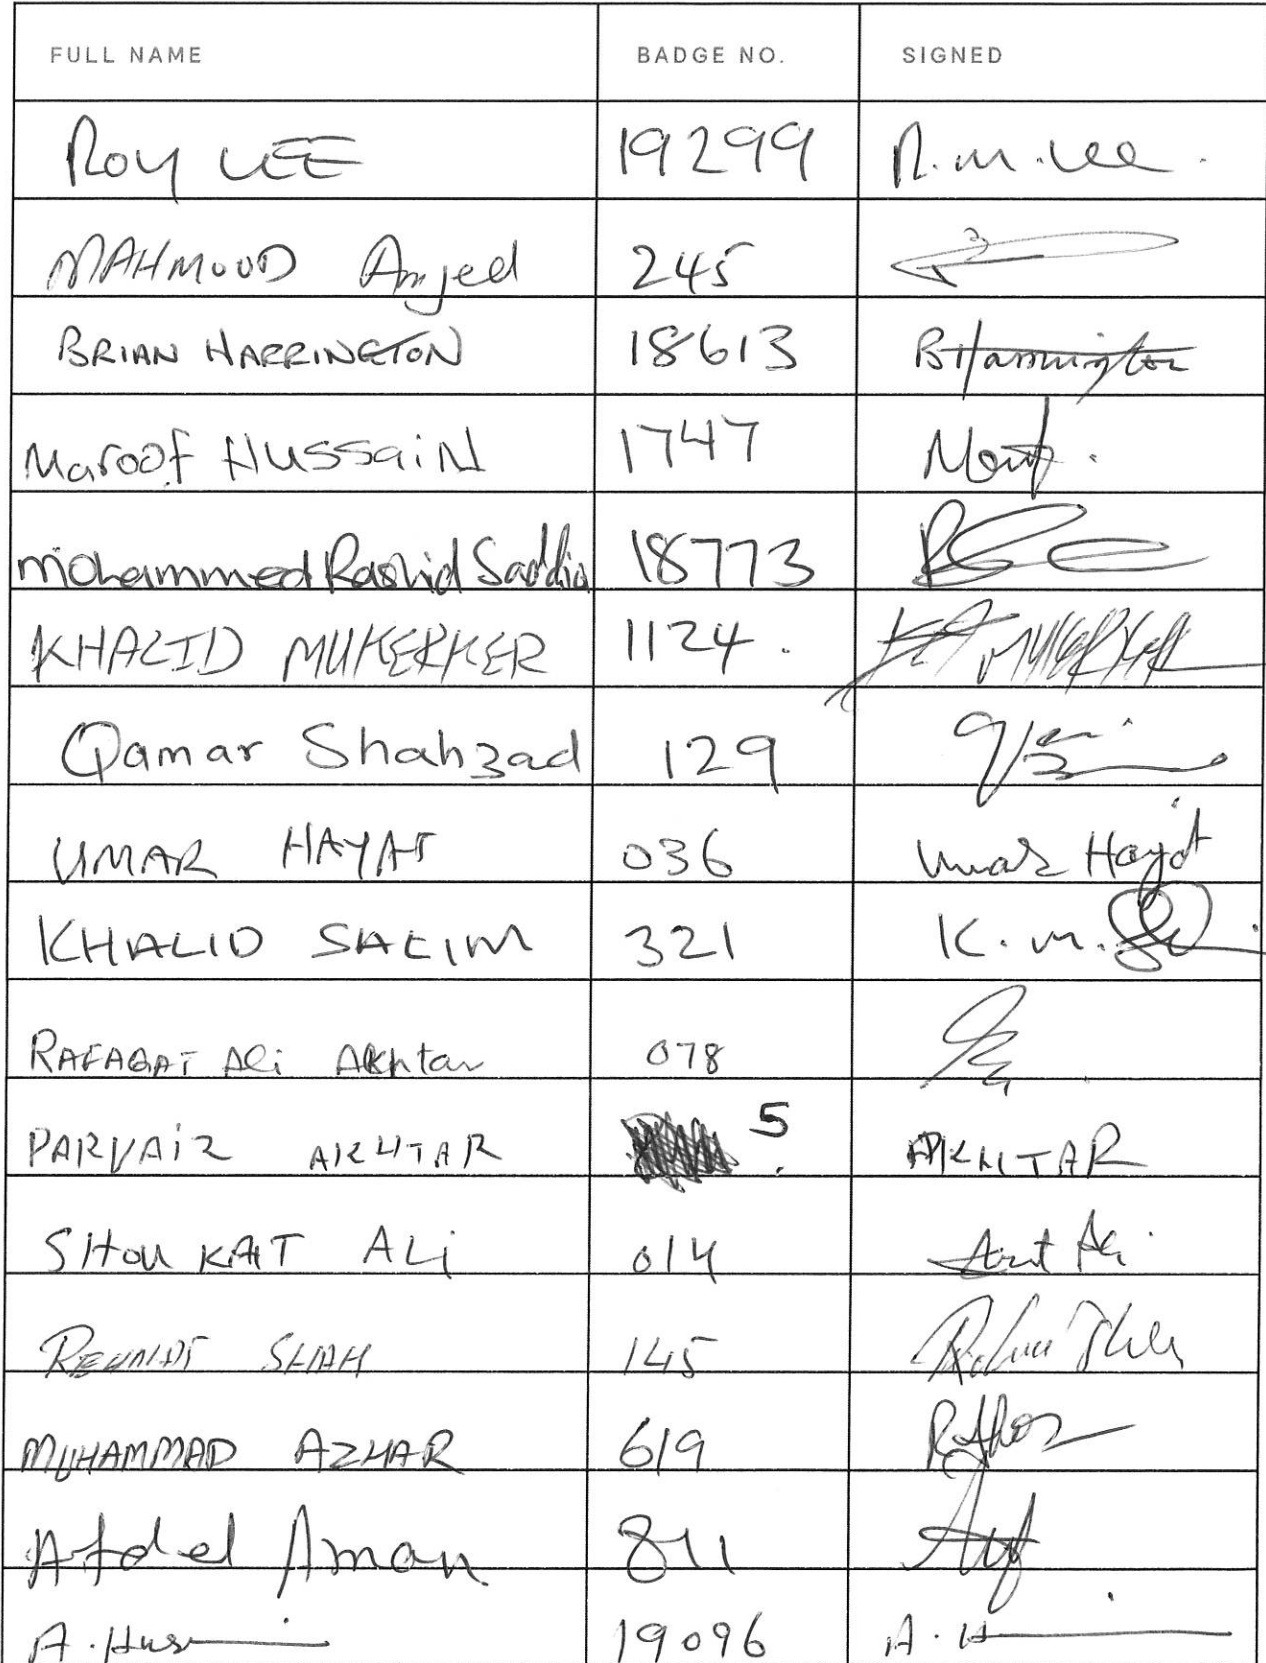 FULL NAME BADGE NO. SIGNED
ROY LEE 19299 R.M.Lee.
MAHMOOD Amjed 245
BRIAN HARRINGTON 18613 BHarrington
Maroof HUSSaiN 1747
mohammed Rashid Saddiq 18773
KHALID MUKERKER 1124. MUKERKER
Qamar Shahzad 129
UMAR HAYAT 036 Umar Hayat
KHALID SALIM 321 K.M.
RAFAQAT ALi Akhtar 078
PARVAiZ AKHTAR 5 AKHTAR
SHOUKAT ALi 014 Ali
SHAH 145
MUHAMMAD AZHAR 619
Afdel Aman 811
A. Hus 19096 A. H